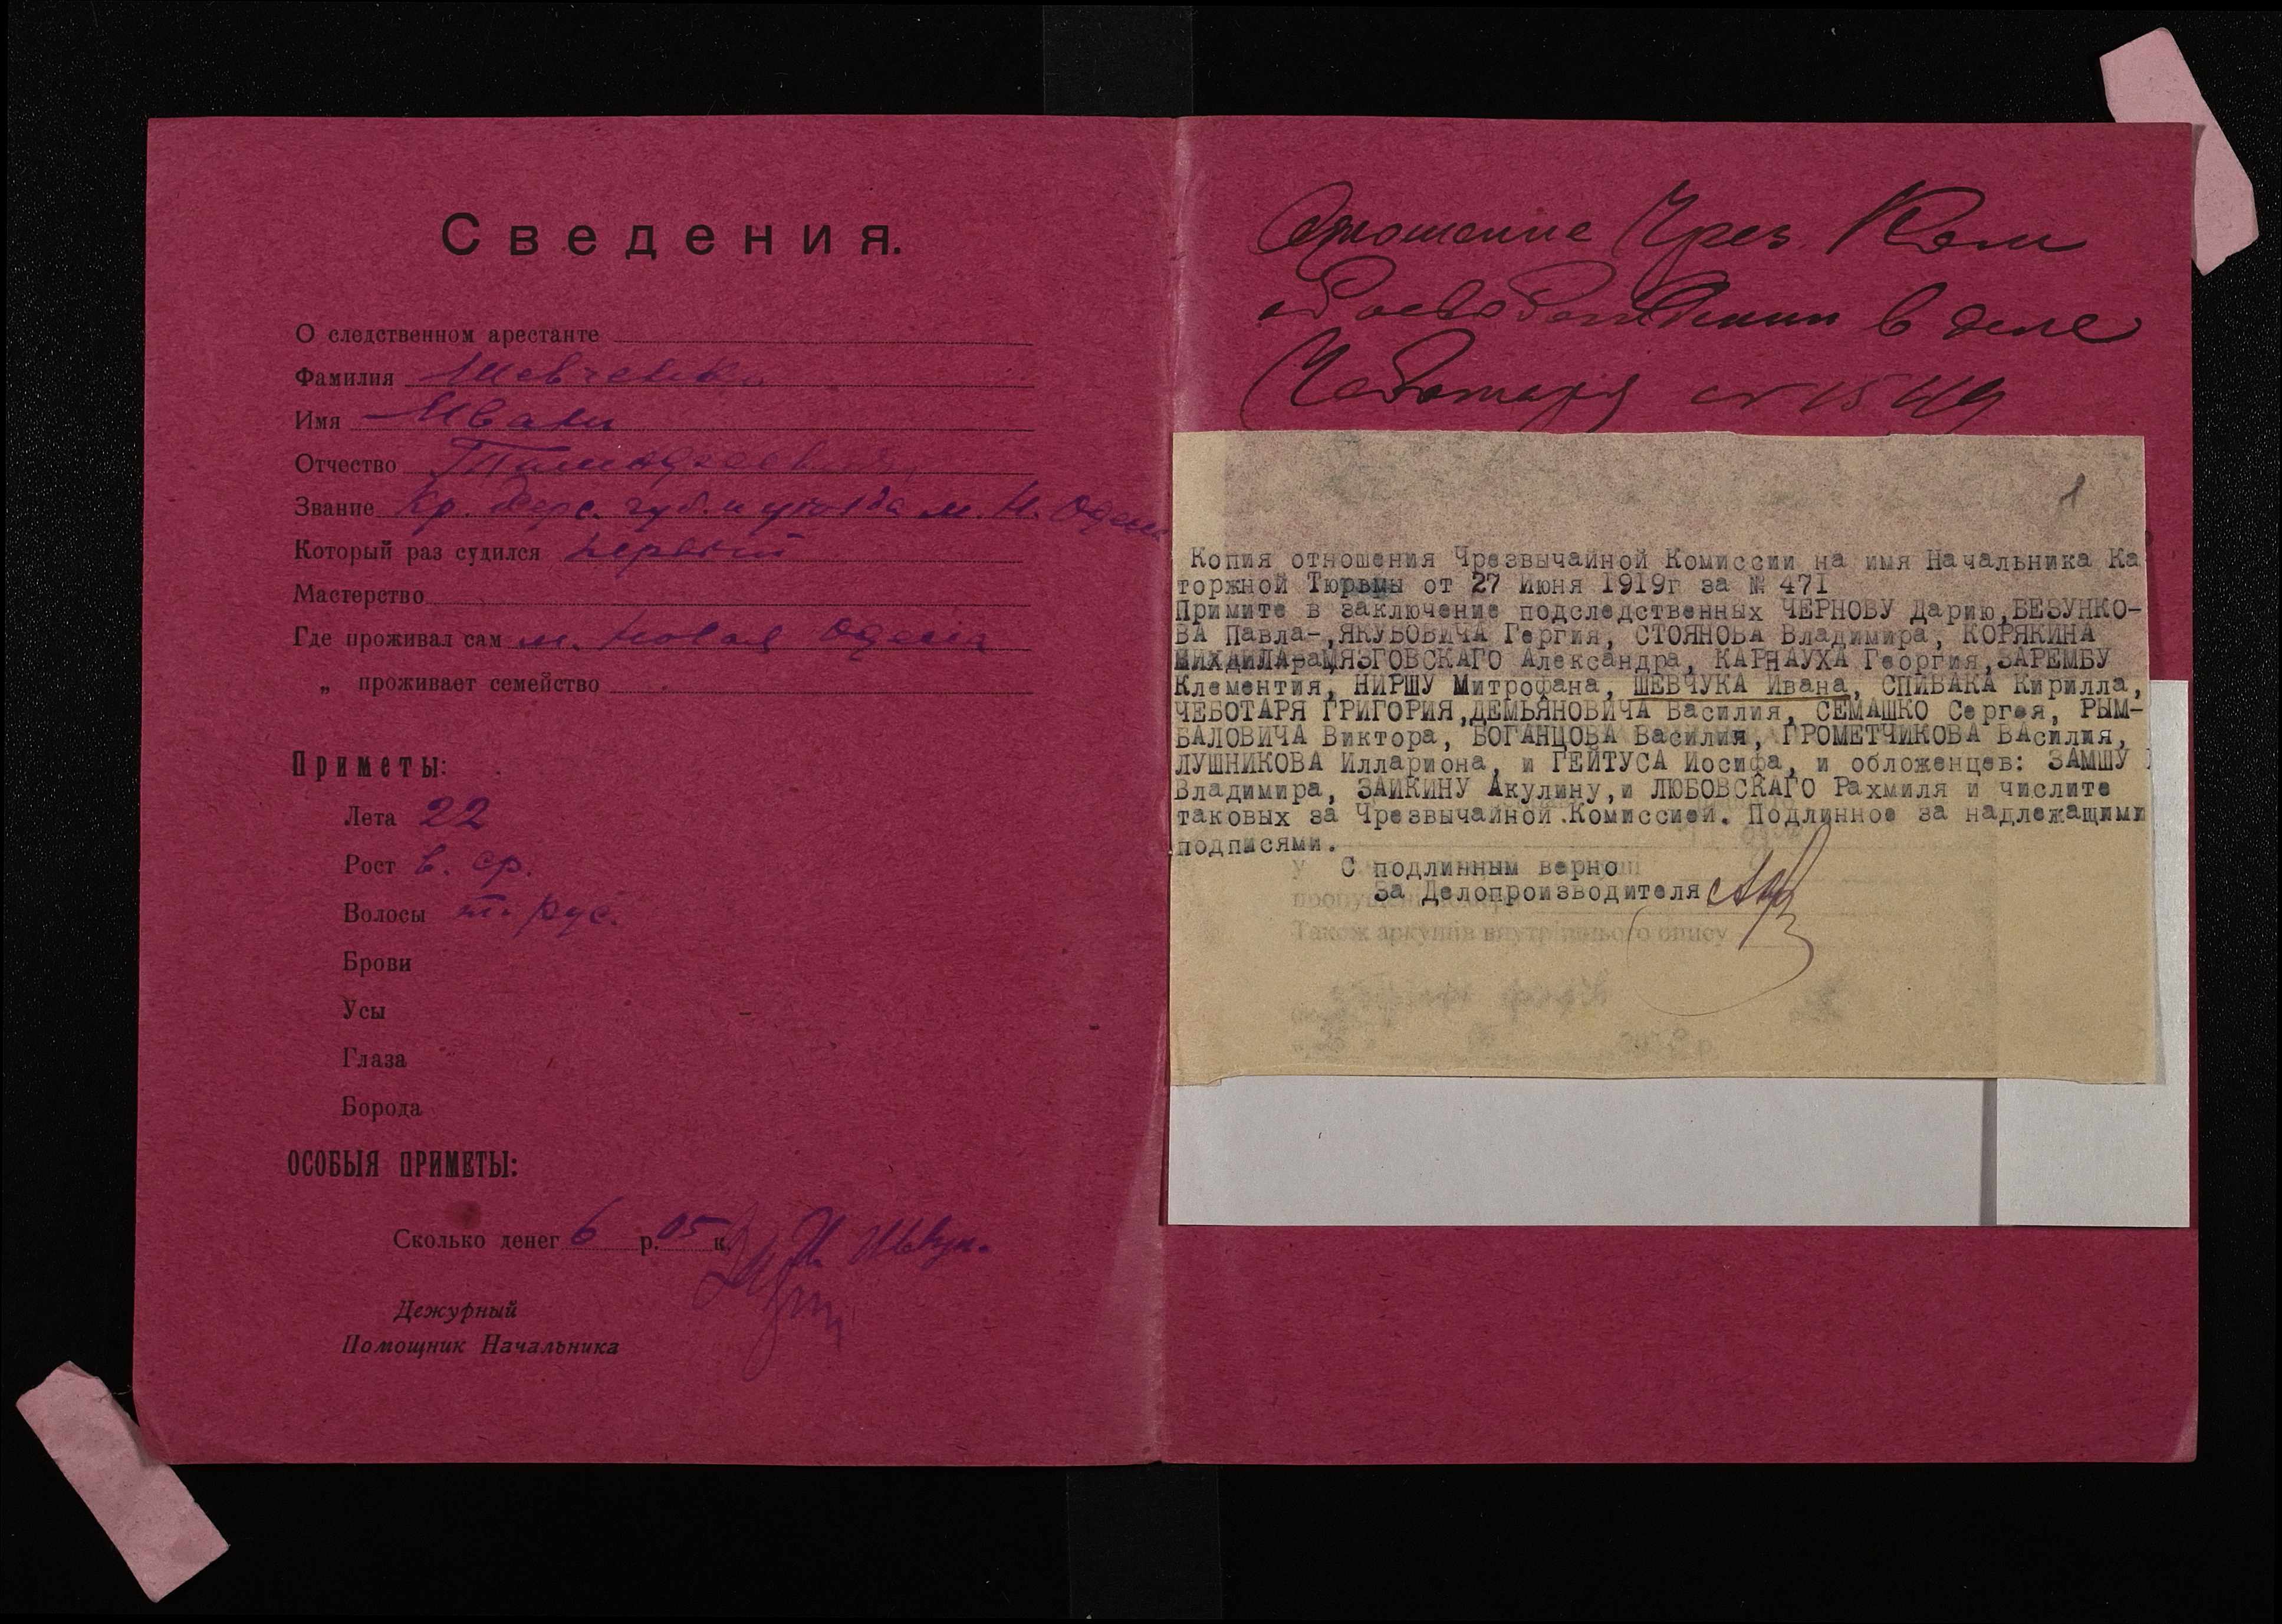 Сведения.
О следственном арестанте
Фамилия Шевченко
Имя Иван
Отчество Тимофеевич
Звание Кр. Херс. губ. и уезда м. Н. Одесса
Который раз судился первый
Мастерство
Где проживал сам м. Новая Одесса
„ проживает семейство
Приметы:
Лета 22
Рост в. ср.
Волосы т. рус.
Брови
Усы
Глаза
Борода
ОСОБЫЯ ПРИМЕТЫ:
Сколько денег 6 р. 05 к.
Дежурный
Помощник Начальника
Отношение Чрез. Ком
об освобождении в деле
Чеботаря ст 1549
1
Копия отношения Чрезвычайной Комиссии на имя Начальника Ка
торжной Тюрьмы от 27 Июня 1919г за № 471
Примите в заключение подследственных ЧЕРНОВУ Дарию,БЕЗУНКО-
ВА Павла-,ЯКУБОВИЧА Гергия, СТОЯНОВА Владимира, КОРЯКИНА
МИХАИЛА МЯЗГОВСКАГО Александра, КАРНАУХА Георгия,ЗАРЕМБУ
Клементия, НИРШУ Митрофана, ШЕВЧУКА Ивана, СПИВАКА Кирилла,
ЧЕБОТАРЯ ГРИГОРИЯ,ДЕМЬЯНОВИЧА Василия, СЕМАШКО Сергея, РЫМ-
БАЛОВИЧА Виктора, БОГАНЦОВА Василия, ПРОМЕТЧИКОВА ВАсилия,
ЛУШНИКОВА Иллариона, и ГЕЙТУСА Иосифа, и обложенцев: ЗАМШУ
Владимира, ЗАИКИНУ Акулину,и ЛЮБОВСКАГО Рахмиля и числите
таковых за Чрезвычайной.Комиссией. Подлинное за надлежащими
подписями.
С подлинным верно
За Делопроизводителя
Також аркушів внутрішнього опису